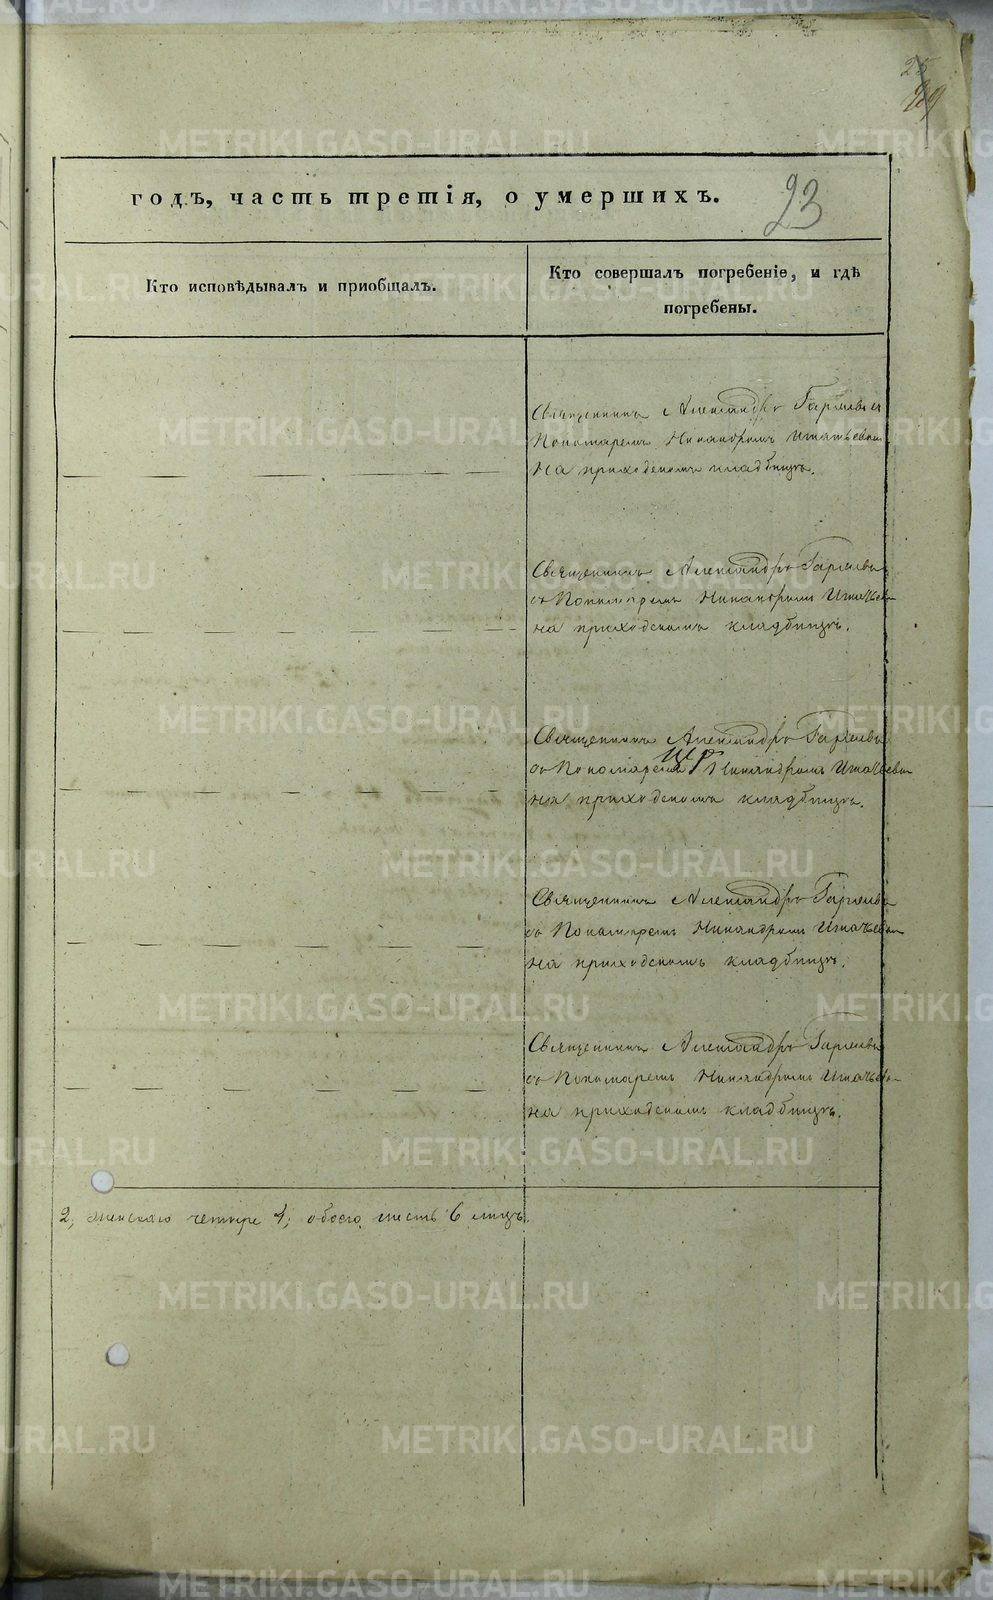 25
годъ, часть третія, о умершихъ.
23
Кто исповѣдывалъ и приобщалъ.
Кто совершалъ погребеніе, и гдѣ
погребены.
Священникъ Александръ
Пономаремъ Никандромъ
На приходскомъ кладбищѣ.
Священникъ Александръ
съ Пономаремъ Никандромъ
на приходскомъ кладбищѣ.
Священникъ Александръ
съ Пономаремъ Никандромъ
на приходскомъ кладбищѣ.
Священникъ Александръ
съ Пономаремъ Никандромъ
на приходскомъ кладбищѣ.
Священникъ Александръ
съ Пономаремъ Никандромъ
на приходскомъ кладбищѣ.
2, женскаго четыре 4, обоего шесть 6 лицъ.
METRIKI.GASO-URAL.RU